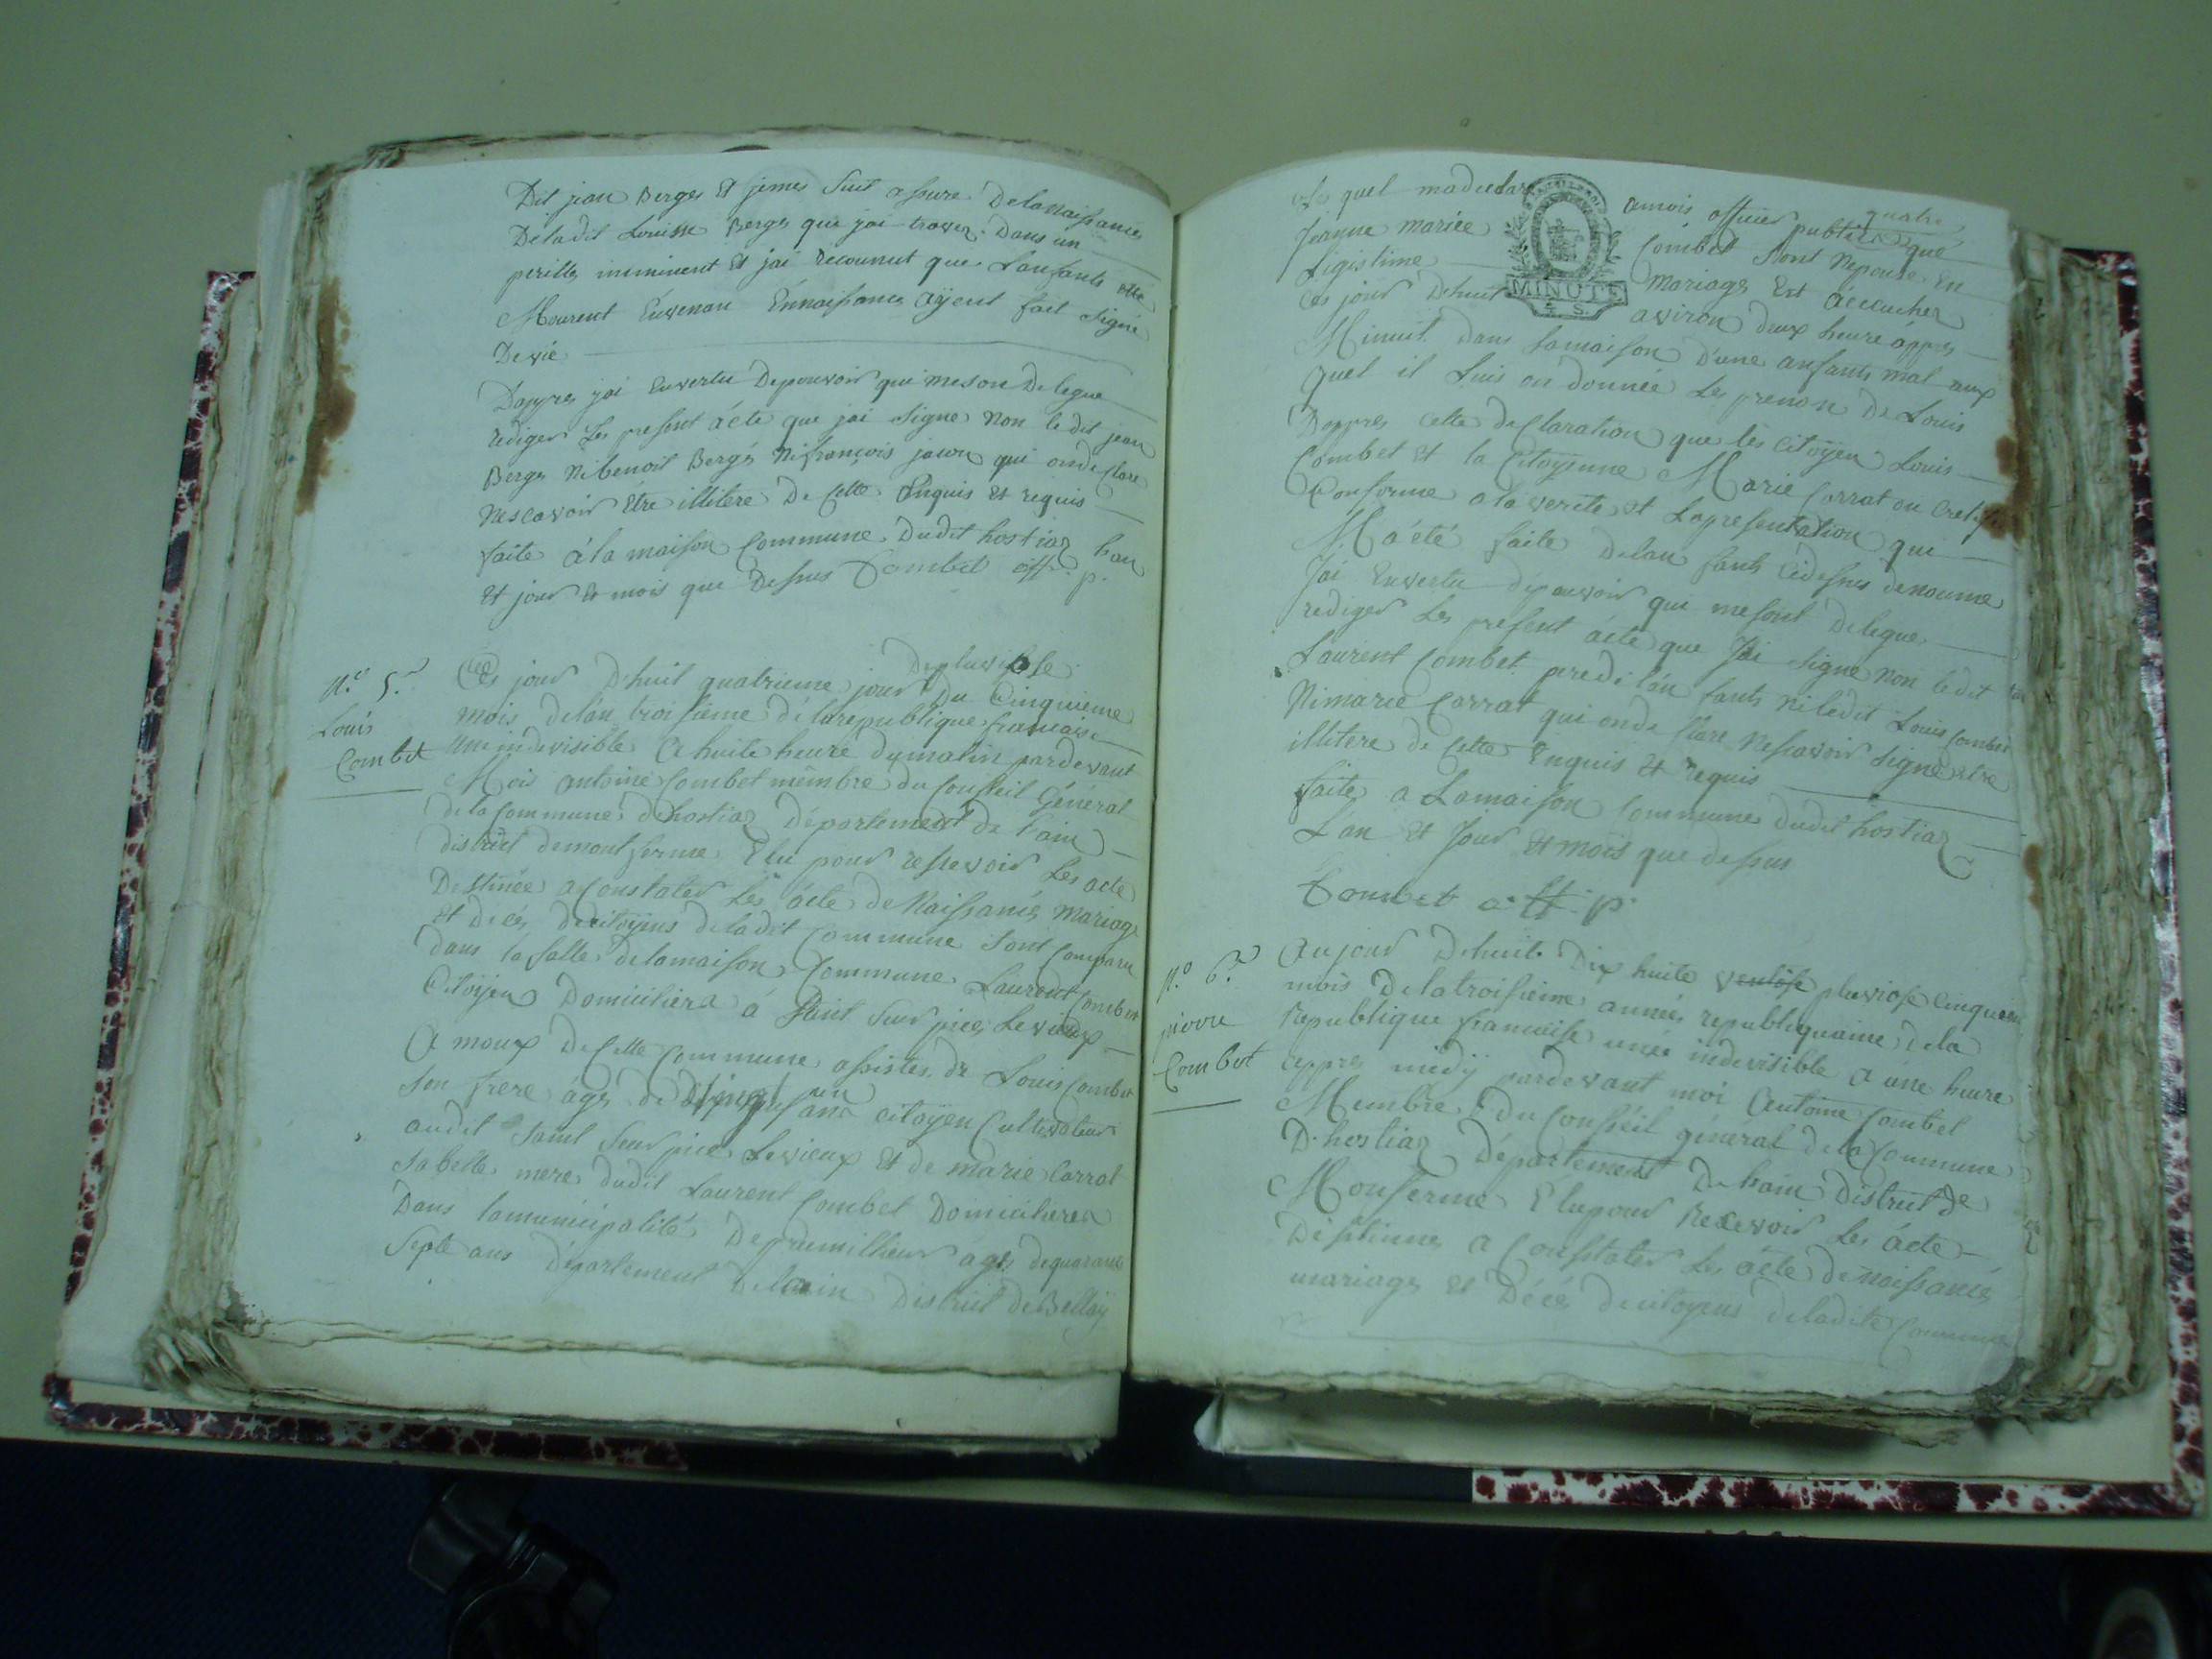 Dit jean Berge Et jemes Suit assure Delanaissance
Deladit Louisse Berge que jai trower Dans un
perille imminent Et jai recounut que Lanfants
Mourent Euvenan Ennaissance ayent fait Signé
Devié
Dappres jai Enwertu Depouvoir qui meson Delegue
rediger Les present acte que jai Signe Non le dit jean
Berge Nibenoit Bergé Nifrançois jacon qui ondeclare
Nescavoir Etre illitere De Cette Enquis Et requis
faite à la maison Commune Dudit hostiaz lan
Et jour Et mois que Dessus Combet off. p.
N.o 5.e
Louis
Combet
Depluviose
Ces jour Dhuit quatrieme jour Du Cinquieme
mois Delan troisieme de larepublique francaise
Une indevisible A huite heure dumatin pardevant
Mois antoine Combet membre du Conseil Général
dela Commune dhostiaz département de lain
district demontferme Elu pour ressevoir Les acte
Destinée a Constater Les acte de Naissance mariage
et decés decitoyens deladit Commune Sont Comparu
dans la salle delamaison Commune Laurent Combet
Citoyen Domiciliera à Saint Surpice Levieux
A moux De Cette Commune assistes de Louis Combet
Son frere âgé de un ans citoyen Cultivateur
audit Saint Surpice Levieux Et de marie Carrat
Sabelle mere dudit Laurent Combet Domicilierea
Dans lamunicipalité De premillieur agés dequarante
Septe ans département delain District deBelley
Le quel madeclare amois officier public que
quatre
Jeanne mariee Combet Sont Nepouse En
Ligistime mariage Est accucher
Ces jour Dehuit aviron deux heure appres
MINUTE
Minuit dans lamaison D'une anfants mal aux
quel il Luis on donnée Les prenon De Louis
Dappres cette declaration que les citoyen Louis
Combet Et la Citoyenne Marie Carrat on
Conforme a la verite et Lapresentation qui
Ma été faite delan fants Cidesus denoume
Jai Enwertu depouvoir qui mesont delegue
rediger Les present acte que Jai Signe non ledit
Laurent Combet perede lan fants niledit Louis Combet
Nimarie Carrat qui onde Clare Nescavoir Signe etre
illitere de Cette Enquis Et requis
faite a Lamaison Commune dudit hostiaz
L'an Et Jour Et mois que dessus
Combet off. p.
N.o 6.e
pierre
Combet
Aujour Dehuit Dix huite ventose pluviose Cinquieme
mois Delatroisieme année republiquaine dela
Republique francaise unée indevisible a une heure
appres midy pardevant moi Antoine Combet
Membre Du Conseil général dela Commune
D'hostiaz Département De lain District de
Monferme Elupour Recevoir Les acte
Destinnes a Constater Les acte de naissance
mariage et Décés decitoyens deladite Commune